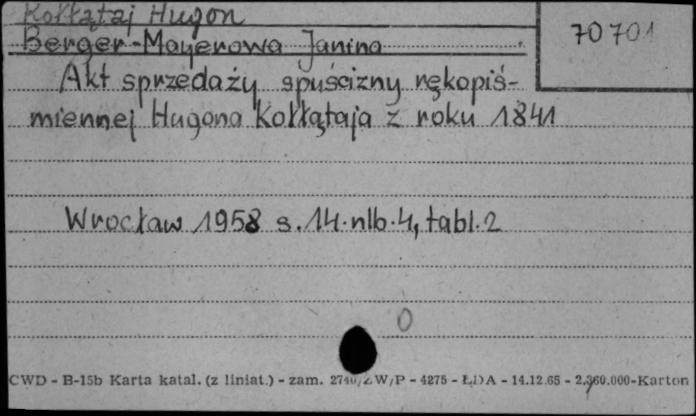 Kołłątaj Hugon
70701
Berger-Mayerowa Janina
Akt sprzedaży spuścizny rękopiś-
miennej Hugona Kołłątaja z roku 1841
Wrocław 1958 s. 14. nlb. 4, tabl. 2
0
CWD - B-15b Karta katal. (z liniat.) - zam. W/P - 4275 - ŁDA - 14.12.65 - 2.360.000-Karton